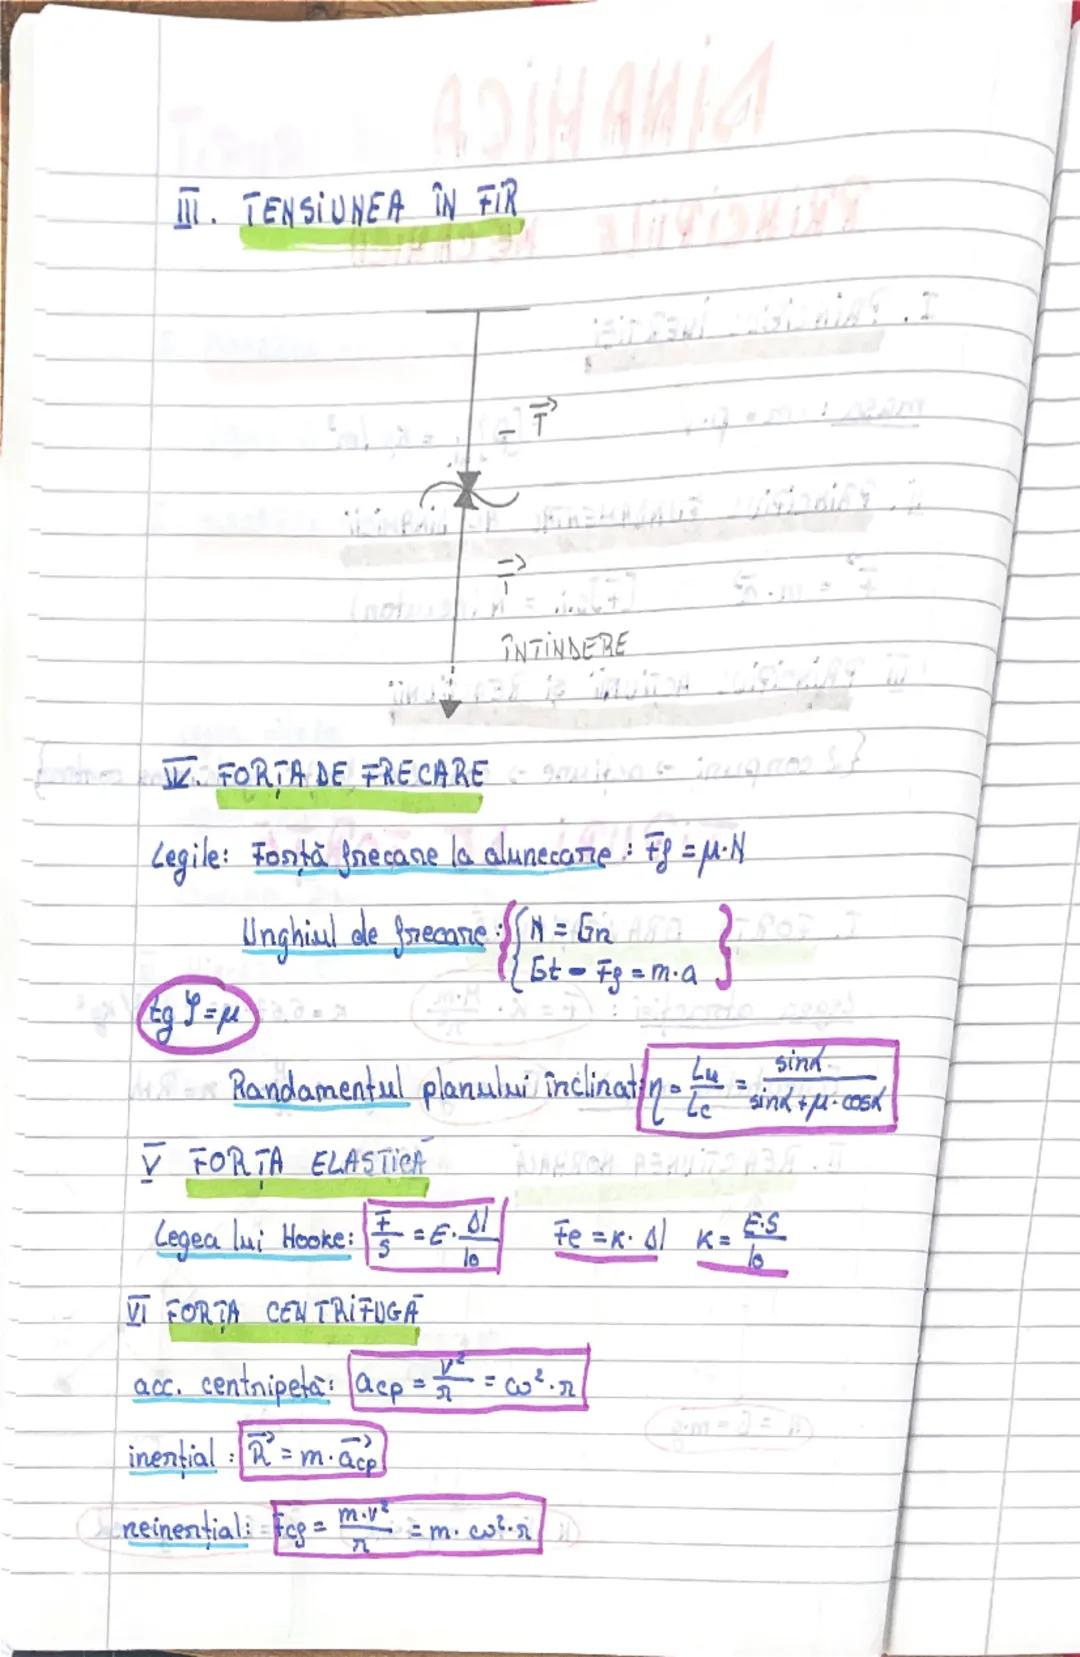 III. TENSIUNEA ÎN FIR
T
ÎNTINDERE
IV. FORȚA DE FRECARE
Legile: Forță frecare la alunecare : Ff = μ·N
Unghiul de frecare : { N = Gn
Gt - Ff = m·a }
tg φ = μ
Randamentul planului înclinat: η = Lu/Lc = sinα/(sinα + μ·cosα)
V FORȚA ELASTICĂ
Legea lui Hooke: F/S = E·Δl/l0   Fe = K·Δl   K = E·S/l0
VI FORȚA CENTRIFUGĂ
acc. centripetă: acp = v²/r = ω²·r
inerțial : R = m·acp
neinerțial: Fcf = m·v²/r = m·ω²·r